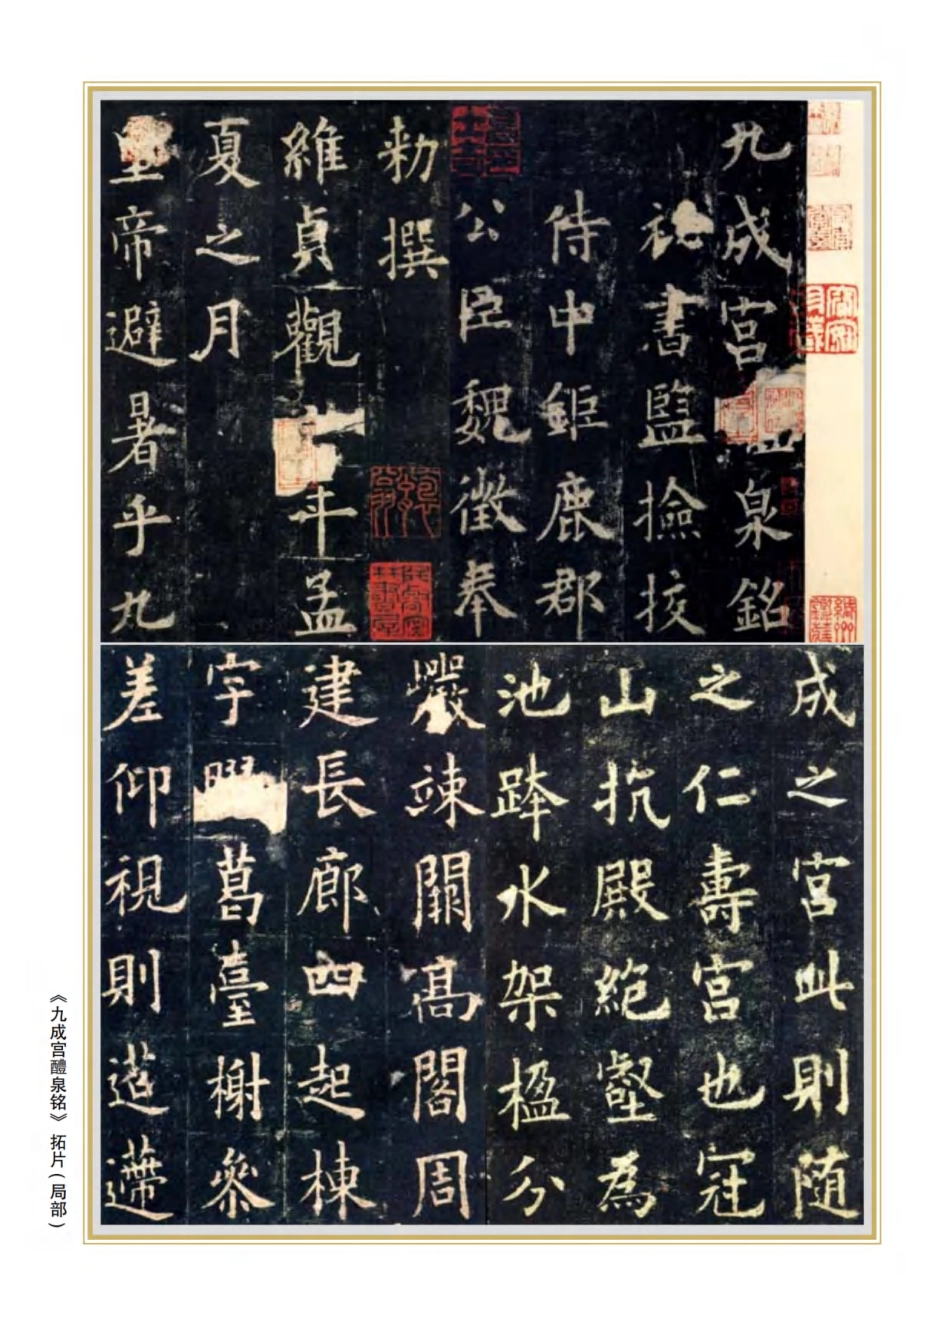 九成宮醴泉銘
祕書監撿挍
侍中鉅鹿郡
公臣魏徵奉
勑撰
維貞觀六年孟
夏之月
皇帝避暑乎九
成之宮此則随
之仁壽宮也冠
山抗殿絕壑為
池跨水架楹分
巖竦闕高閣周
建長廊四起棟
宇膠葛臺榭參
差仰視則迢遰
《九成宫醴泉铭》拓片(局部)